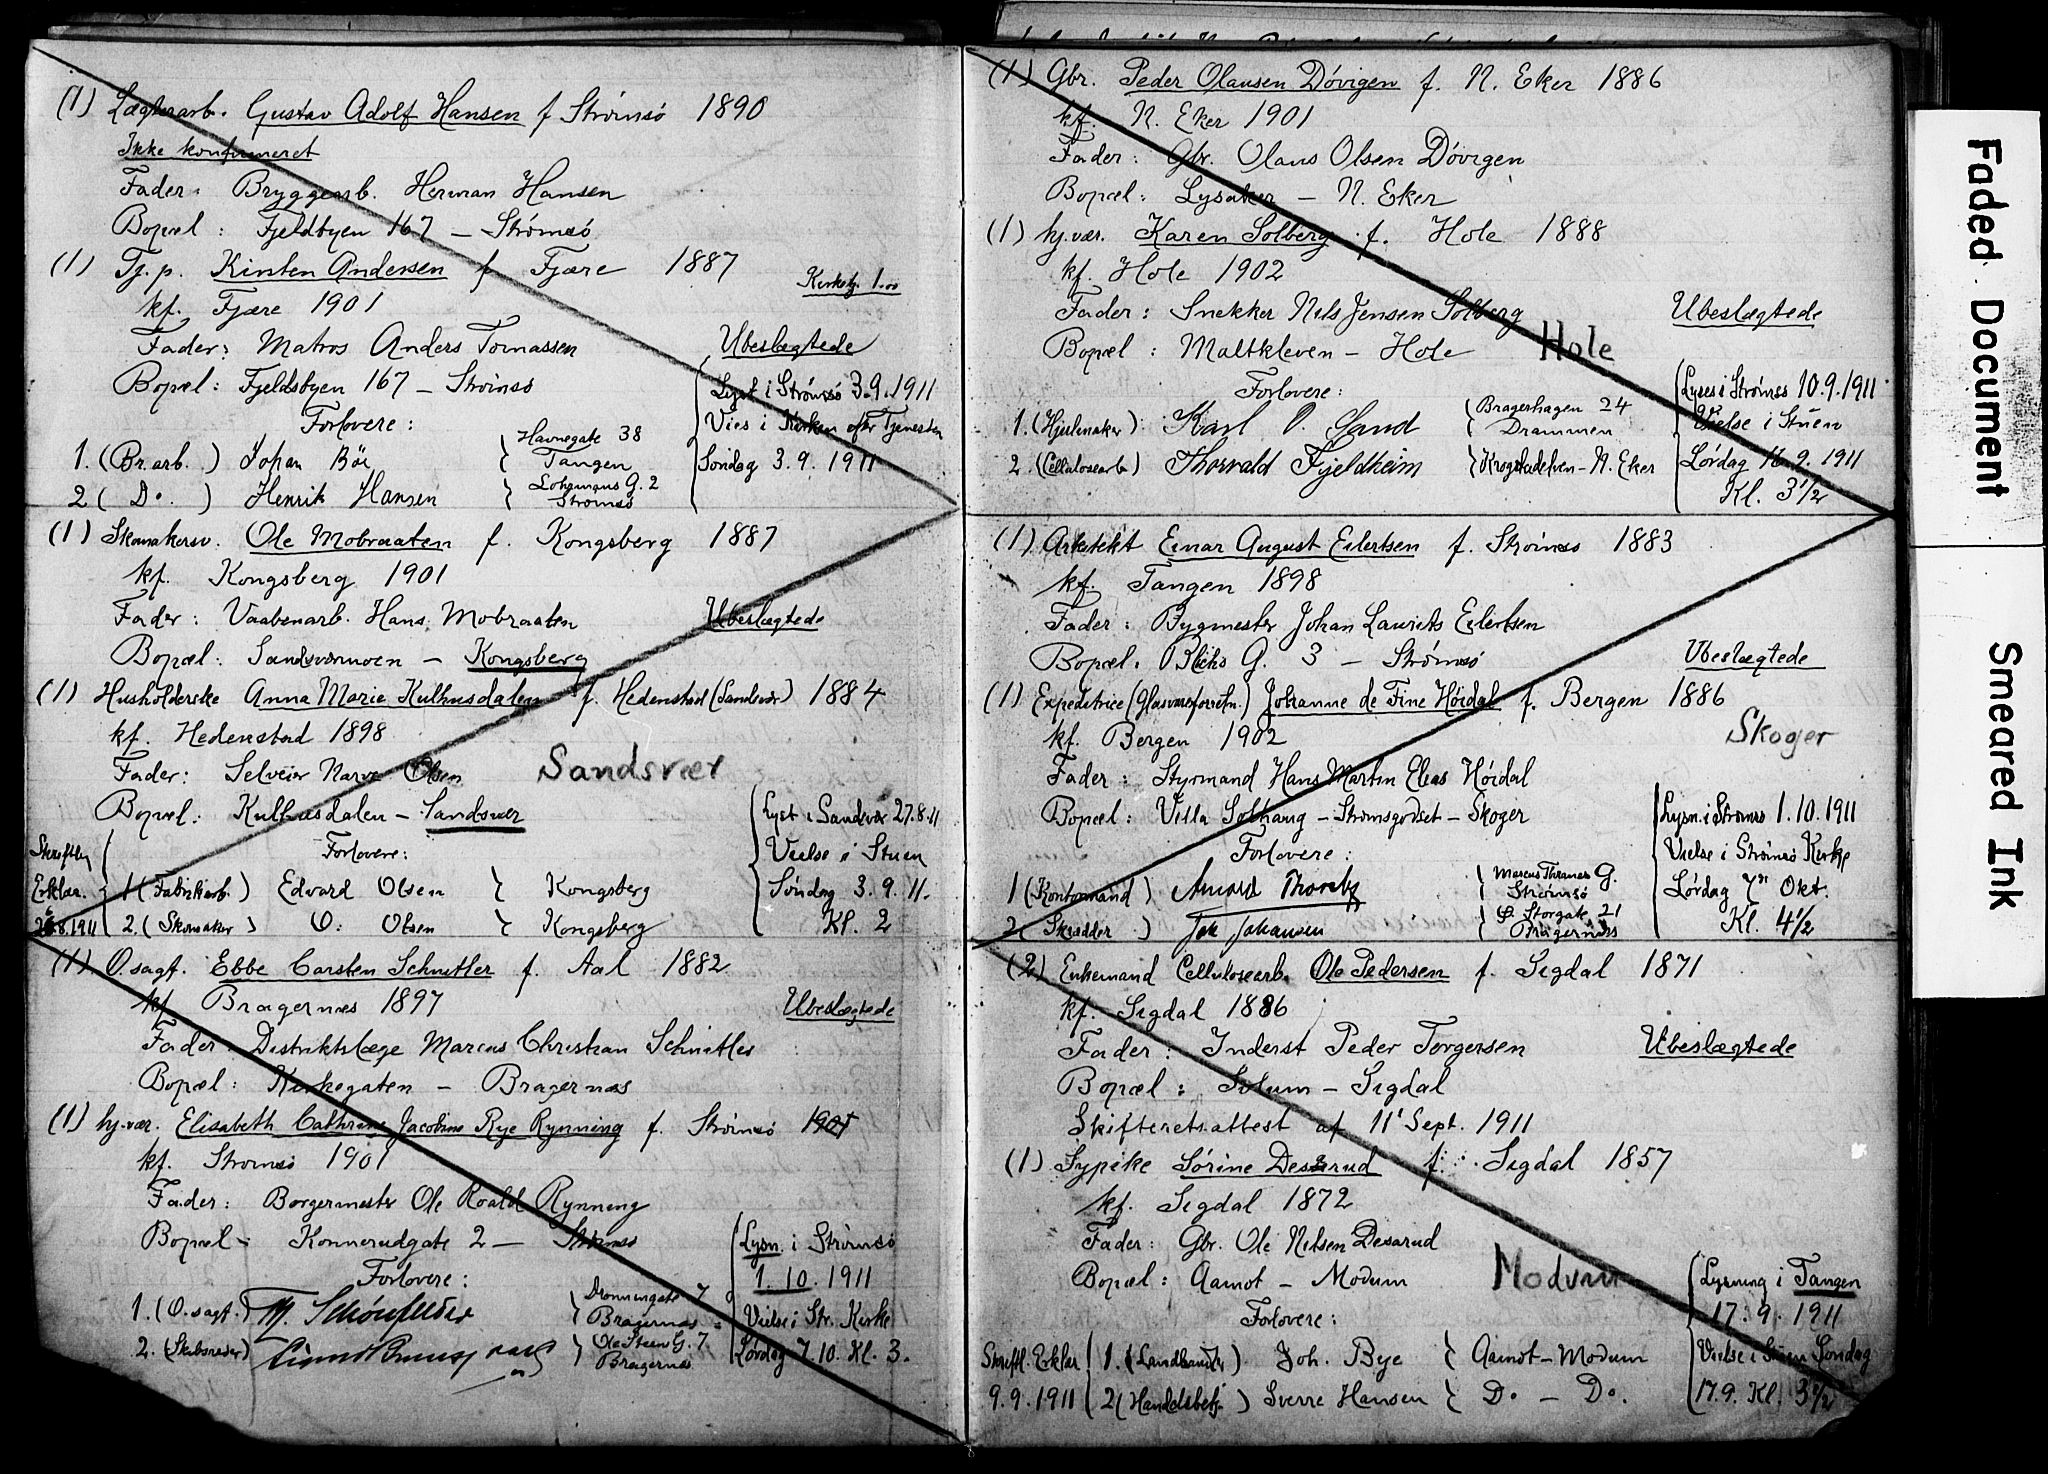 (1) Lægterarb. Gustav Adolf Hansen f Strømsø 1890
Ikke konfirmeret
Fader: Bryggearb. Herman Hansen
Bopæl: Fjeldbyen 167 – Strømsø
(1) Tj.p. Kirsten Andersen f Fjære 1887
Kirketj. 1.00
kf. Fjære 1901
Fader: Matros Anders Tomassen
Ubeslægtede
Bopæl: Fjeldsbyen 167 – Strømsø
Lyst i Strømsø 3.9.1911
Forlovere:
Vies i Kirken efter Tjenesten
1. (Br.arb.) Johan Bör } Havnegate 38 Tangen
Søndag 3.9.1911
2 (Do.) Henrik Hansen } G. 2 Strømsø
(1) Skomakersv. Ole Mobraaten f. Kongsberg 1887
kf. Kongsberg 1901
Fader: Vaabenarb. Hans Mobraaten
Ubeslægtede
Bopæl: Sandsværmoen – Kongsberg
(1) Husholderske Anna Marie Kulhusdalen f. Hedenstad (Sandsvær) 1884
kf. Hedenstad 1898
Fader: Selveier Narve Olsen
Sandsvær
Bopæl: Kulhusdalen – Sandsvær
Lyst i Sandsvær 27.8.11
Forlovere:
Vielse i Stuen
Skriftlig Erklær. 8.1911
1 (Fabrikarb.) Edvard Olsen } Kongsberg
Søndag 3.9.11.
2. (Skomaker) O. Olsen } Kongsberg
Kl. 2
(1) O.sagf. Ebbe Carsten Schnitler f. Aal 1882
kf Bragernæs 1897
Ubeslægtede
Fader: Distriktslæge Marcus Christian Schnitler
Bopæl: Kirkegaten – Bragernæs
(1) hj.vær. Elisabeth Cathrine Jacobine Rye Rynning f. Strømsø 1901
kf. Strømsø 1901
Fader: Borgermester Ole Roald Rynning
Bopæl – Konnerudgate 2 – Strømsø
Lysn. i Strømsø
Forlovere:
1.10.1911
1. (O.sagf.) } Dronningate 7 Bragernæs
Vielse i Str. Kirke
2. (Skibsreder) } Ole Steen G. 7. Bragernæs
Lørdag 7.10. Kl. 3.
(1) Gbr. Peder Olausen Døvigen f. N. Eker 1886
kf. N. Eker 1901
Fader: Gbr. Olaus Olsen Døvigen
Bopæl: Lysaker – N. Eker
(1) hj.vær. Karen Solberg f. Hole 1888
kf. Hole 1902
Fader: Snekker Nils Jensen Solberg
Ubeslægtede
Bopæl: Maltkleven – Hole
Hole
Forlovere:
Lyses i Strømsø 10.9.1911
1. (Hjulmaker) Karl O. Sand } Bragerhagen 24 Drammen
Vielse i Stuen
2. (Cellulosearb) Thorvald Fjeldheim } Krogstadelven – N. Eker
Lørdag 16.9.1911
Kl. 3 1/2
(1) Arkitekt Einar August Eilertsen f. Strømsø 1883
kf. Tangen 1898
Fader: Bygmester Johan Laurits Eilertsen
Bopæl. Bliks G. 3 – Strømsø
Ubeslægtede
(1) Expeditrice (Glasvareforretn.) Johanne de Fine Høidal f. Bergen 1886
kf. Bergen 1902
Skoger
Fader: Styrmand Hans Martin Elias Høidal
Bopæl: Villa Solhaug – Strømsgodset – Skoger
Lysn. i Strømsø 1.10.1911
Forlovere:
Vielse i Strømsø Kirke
1 (Kontormand) Thoreby } Marcus Thranes G. Strømsø
Lørdag 7de Okt.
2 (Skrædder) Joh Johansen } Ø. Storgate 21 Bragernæs
Kl. 4 1/2
(2) Enkemand Cellulosearb. Ole Pedersen f. Sigdal 1871
kf. Sigdal 1886
Fader: Inderst Peder Torgersen
Ubeslægtede
Bopæl: Solum – Sigdal
Skifteretsattest af 11' Sept. 1911
(1) Sypike Sørine Deserud f. Sigdal 1857
kf. Sigdal 1872
Fader: Gbr. Ole Nilsen Deserud
Bopæl: Aamot – Modum
Modum
Lysning i Tangen
Forlovere:
17.9.1911
Skriftl. Erklær 9.9.1911
1. (Landhandler) Joh. Bye } Aamot – Modum
Vielse i Stuen Søndag
2 (Handelsbetj.) Sverre Hansen } Do – Do.
17.9. Kl. 3 1/2
Faded Document
Smeared Ink